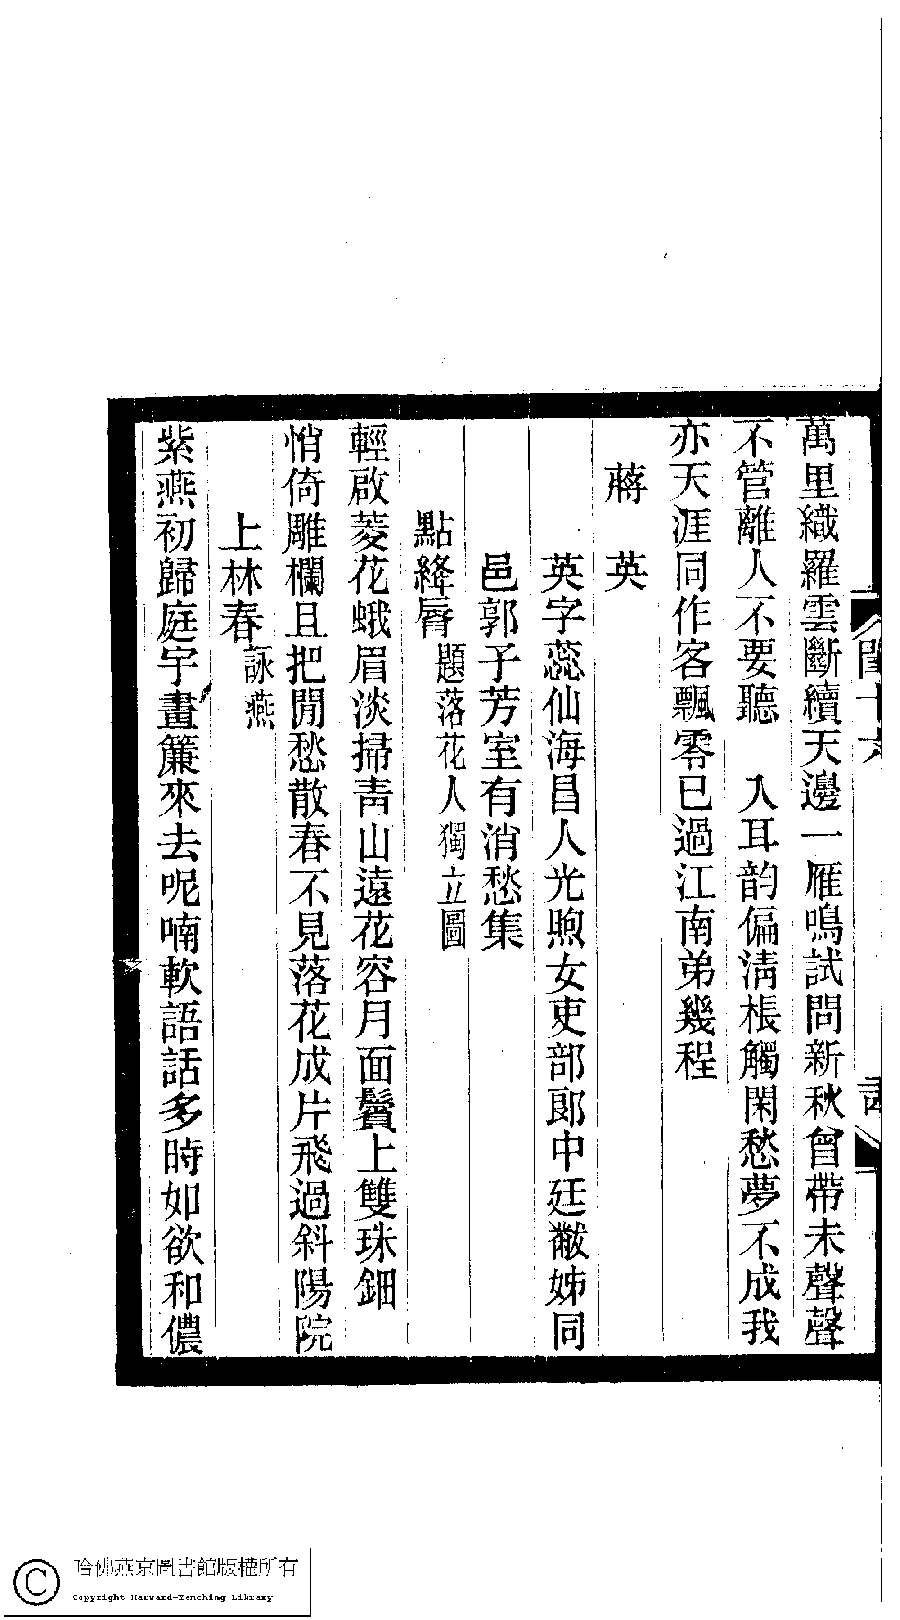 萬里織羅雲斷續天邊一雁鳴試問新秋曾帶未聲聲
不管離人不要聽　入耳韵偏淸棖觸閑愁夢不成我
亦天涯同作客飄零已過江南弟幾程
蔣　英
英字蕊仙海昌人光煦女吏部郞中廷黻姊同
邑郭子芳室有消愁集
點絳脣題落花人獨立圖
輕啟菱花蛾眉淡掃靑山遠花容月面鬢上雙珠鈿
悄倚雕欄且把閒愁散春不見落花成片飛過斜陽院
上林春詠燕
紫燕初歸庭宇畫簾來去呢喃軟語話多時如欲和儂
哈佛燕京圖書館版權所有
Copyright Harvard-Yenching Library